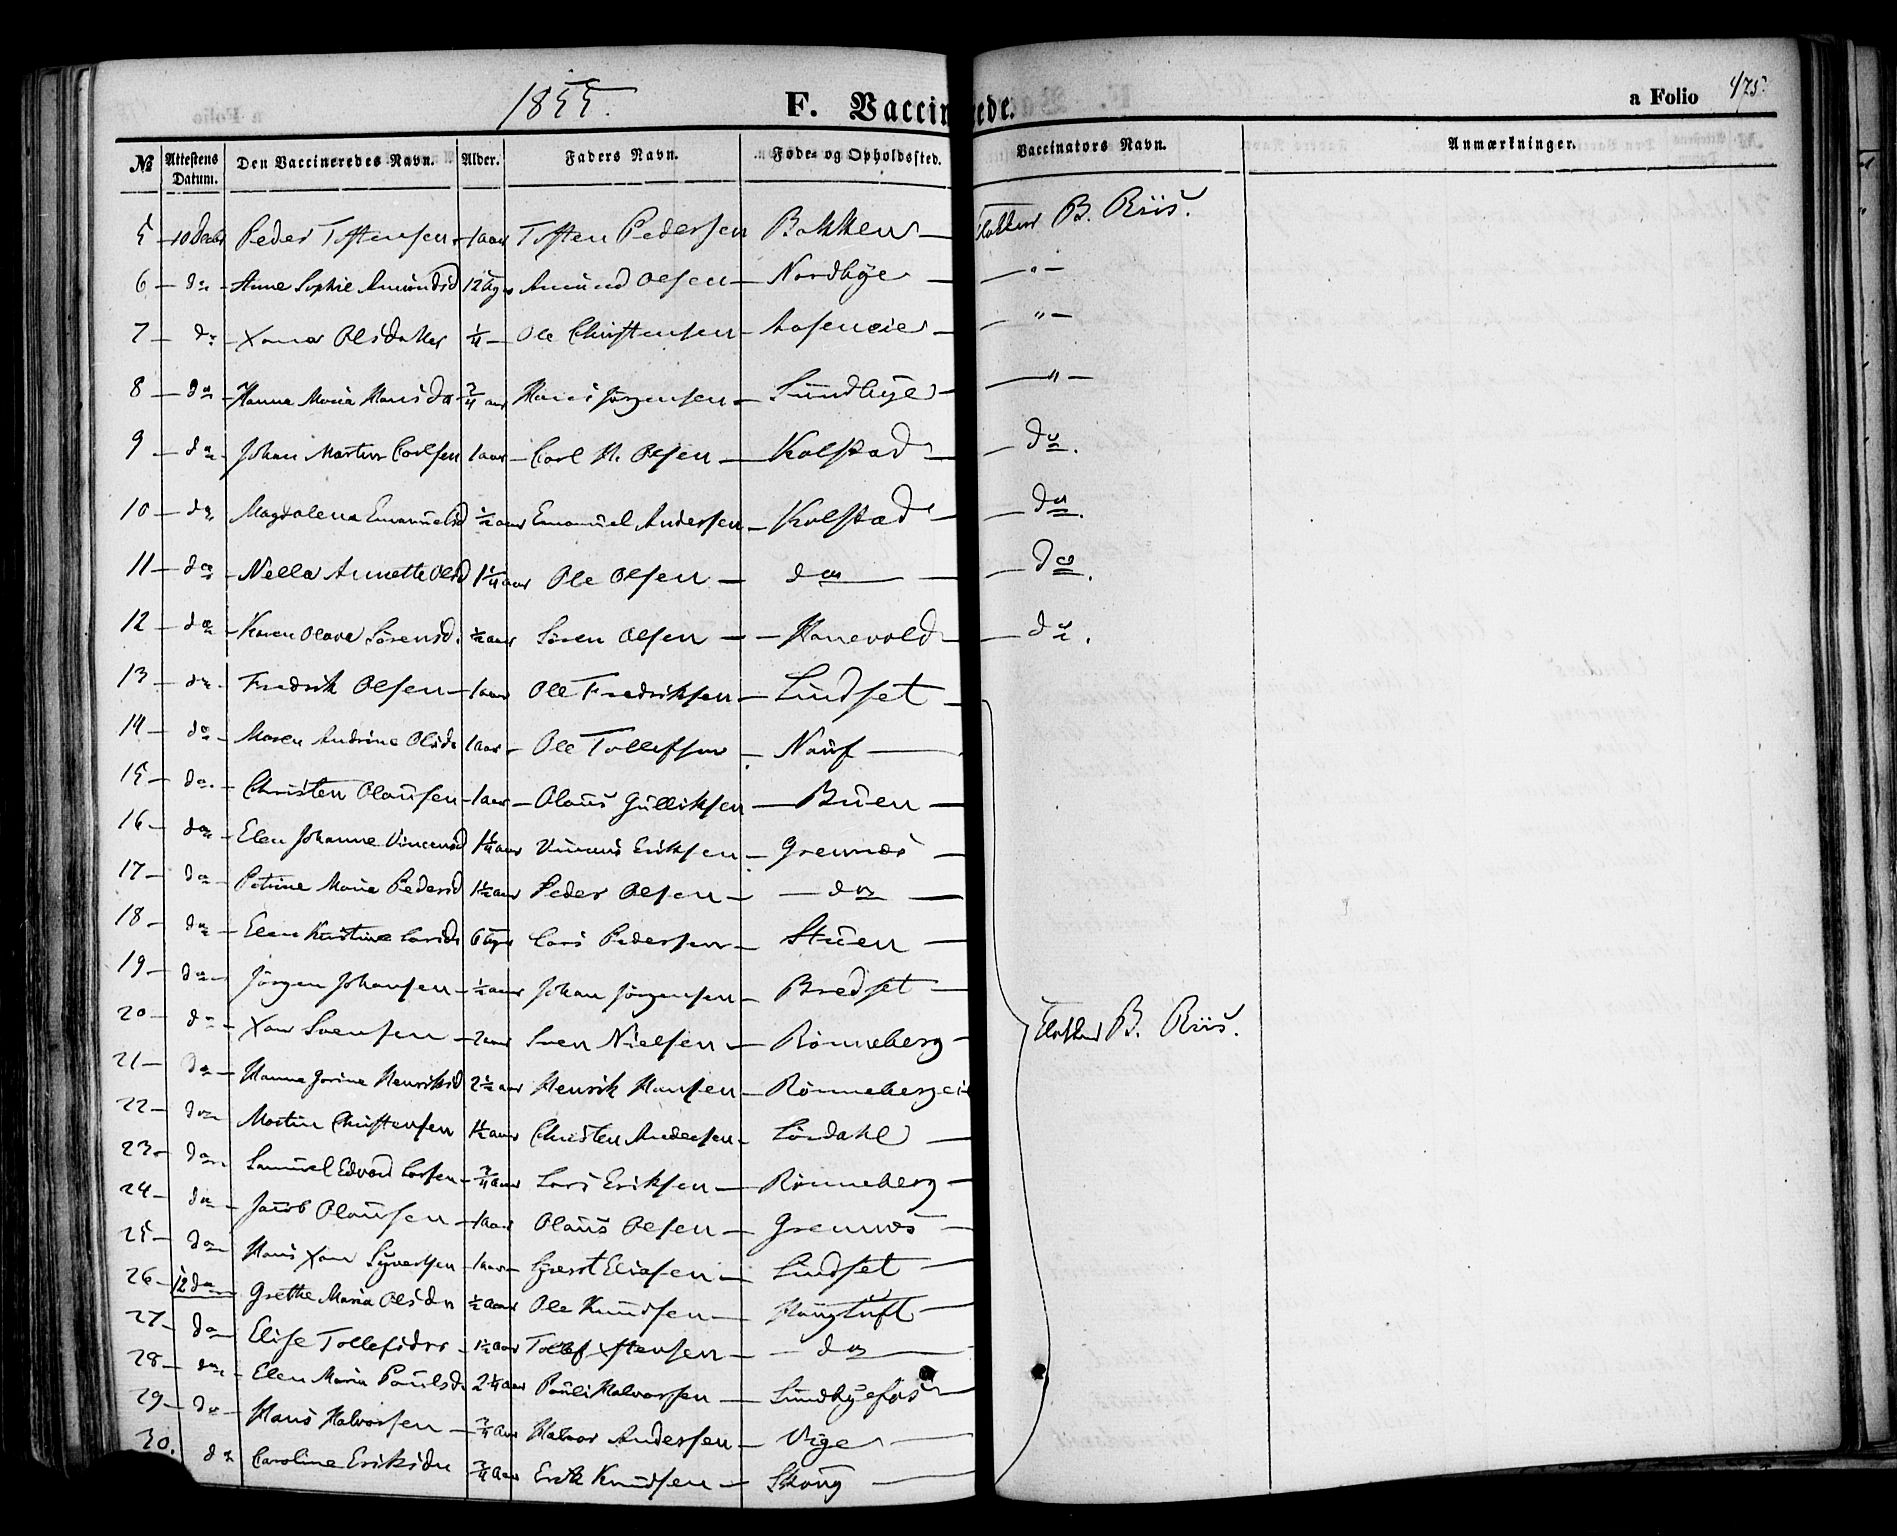 1855.
F. Vaccinerede.
a Folio 475.
№ Attestens Datum. Den Vaccineredes Navn. Alder. Faders Navn. Føde- og Opholdssted. Vaccinators Navn. Anmærkninger.
5 10 Decbr Peder Toftensen 1 aar Toften Pedersen Bakken Klokker B. Riis.
6 do Anne Sophie Amundsd 12 Ugr Amund Olsen Nordbye "
7 do Xana Olsdatter 1/4 Ole Christensen Aaseneie "
8 do Hanna Maria Hansda 3/4 aar Hans Jørgensen Sundbye "
9 do Johan Martin Carlsen 1 aar Carl H. Olsen Kolstad do.
10 do Magdalena Emanuelsd 1/2 aar Emanuel Andersen Kolstad do.
11 do Nella Annette Olsd 1 1/4 aar Ole Olsen do do.
12 do Karen Olava Sørensd. 1/2 aar Søren Olsen Hanevold do.
13 do Fredrik Olsen 1 aar Ole Fredriksen Lindset
14 do Maren Andrine Olsda 1 aar Ole Tollefsen Nauf
15 do. Christen Olausen 1 aar Olaus Gulliksen Buen
16 do Elen Johanne Vincensd 1 1/4 aar Vincens Eriksen Grennes
17 do Petrine Maria Pedersd 1 1/2 aar Peder Olsen do
18 do Elen Kirstine Larsda 6 Ugr Lars Pedersen Stuen
19 do Jørgen Johansen 1/2 aar Johan Jørgensen Bredset
20 do Xan Svensen 2 aar Sven Nielsen Rønneberg Klokker B. Riis.
21 do Hanna Jorine Henriksd 2 1/2 aar Henrik Hansen Rønnebergei
22 do Martin Christensen 1 1/2 aar Christen Andersen Lørdahl
23 do Samuel Edvard Larsen 3/4 aar Lars Eriksen Rønneberg
24 do Jacob Olausen 1 aar Olaus Olsen Grennes
25 do Hans Xan Syversen 1 aar Eliasen Lindset
26 12 do Grethe Maria Olsda 1/2 aar Ole Knudsen Haugtuft
27 do Elise Tollefsdr 1 1/2 aar Tollef Xstensen do
28 do Elen Maria Paulsd. 2 1/4 aar Paul Halvorsen Sundbyefos
29 do Hans Halvorsen 3/4 aar Halvor Andersen Vige
30. do Caroline Eriksda 3/4 aar Erik Knudsen Skoug